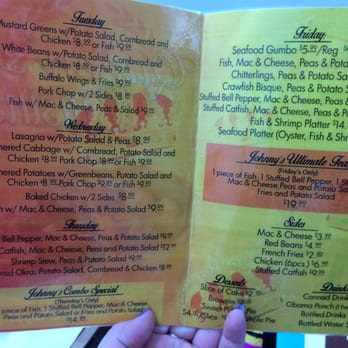 Tuesday
Mustard Greens w/Potato Salad, Cornbread and
Chicken $8.99 or Fish $9.99
White Beans w/Potato Salad, Cornbread and
Chicken $8.99 or Fish $9.99
Buffalo Wings & Fries $9.99
Pork Chop w/2 Sides $8.99
Fish w/ Mac & Cheese, Peas & Salad $9.99
Wednesday
Lasagna w/Potato Salad & Peas $8.99
Smothered Cabbage w/ Cornbread, Potato Salad and
Chicken $8.99 Pork Chop $8.99 or Fish $9.99
Smothered Potatoes w/Greenbeans, Potato Salad and
Chicken $8.99 Pork Chop $9.99 or Fish $9.99
Baked Chicken w/2 Sides $8.99
w/ Mac & Cheese, Peas & Potato Salad $9.99
Thursday
Bell Pepper, Mac & Cheese, Peas & Potato Salad $9.99
Catfish, Mac & Cheese, Peas and Potato Salad $12
Shrimp Stew, Peas & Potato Salad $9.99
Okra, Potato Salad, Cornbread & Chicken $8
Johnny's Combo Special
(Thursday's Only)
piece of Fish, 1 Stuffed Bell Pepper, Mac & Cheese,
Peas and Potato Salad or Fries and Potato Salad
$14.99
Friday
Seafood Gumbo $5.99/Reg
Fish, Mac & Cheese, Peas & Potato
Chitterlings, Peas & Potato Salad
Crawfish Bisque, Peas & Potato Salad
Stuffed Bell Pepper, Mac & Cheese, Peas & Potato
Stuffed Catfish, Mac & Cheese, Peas & Potato
Fish & Shrimp Platter $14
Seafood Platter (Oyster, Fish & Sh
Johnny's Ultimate
(Friday's Only)
1 piece of Fish, 1 Stuffed Bell Pepper, 1
Mac & Cheese, Peas and Potato Salad
and Potato Salad
$19.99
Sides
Mac & Cheese $3.99
Red Beans $4.99
French Fries $2
Chicken (6pcs) $6
Stuffed Catfish $9
Desserts
Slice of Cake
Brownie
Sweet Potato
$4.50/Slice Whole Pie
Drinks
Canned Drink
Obama Punch
Bottled Drinks
Bottled Water